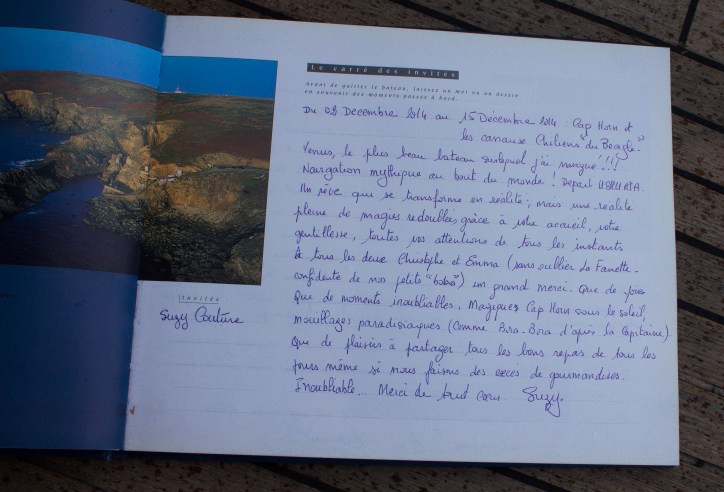 Le carré des invités
Avant de quitter le bateau, laissez un mot ou un dessin
en souvenir des moments passés à bord.
Du 08 Décembre 2014 au 15 Décembre 2014 : Cap Horn et
les canaux Chiliens "du Beagle"
Venus, le plus beau bateau surlequel j'ai navigué !!!
Navigation mythique au bout du monde ! Départ USHUAIA.
Un rêve que se transforme en réalité ; mais une réalité
pleine de magies redoublés, grâce à votre accueil, votre
gentillesse, toutes vos attentions de tous les instants
à tous les deux Christophe et Emma (sans oublier La Fanette
confidente de nos petits "bobos") un grand merci. Que de joies
Que de moments inoubliables. Magiques Cap Horn sous le soleil,
mouillages paradisiaques (comme Bora-Bora d'après la Capitaine)
Que de plaisirs à partager tous les bons repas de tous les
jours même si nous faisons des excès de gourmandises.
Inoubliable... Merci de tout cœur. Suzy.
Invités
Suzy Couture